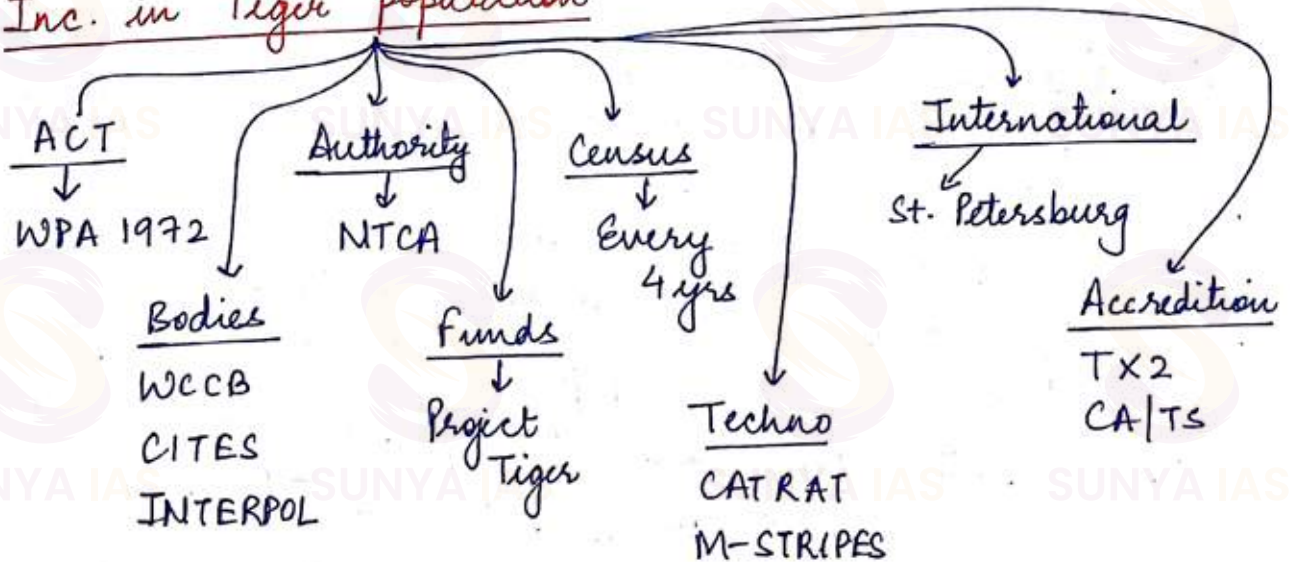 Inc. in Tiger population
ACT
WPA 1972
Bodies
WCCB
CITES
INTERPOL
Authority
NTCA
Funds
Project
Tiger
Census
Every
4 yrs
Techno
CATRAT
M-STRIPES
International
St. Petersburg
Accredition
TX2
CA|TS
SUNYA IAS
SUNYA IAS
SUNYA IAS
SUNYA IAS
SUNYA IAS
SUNYA IAS
SUNYA IAS
SUNYA IAS